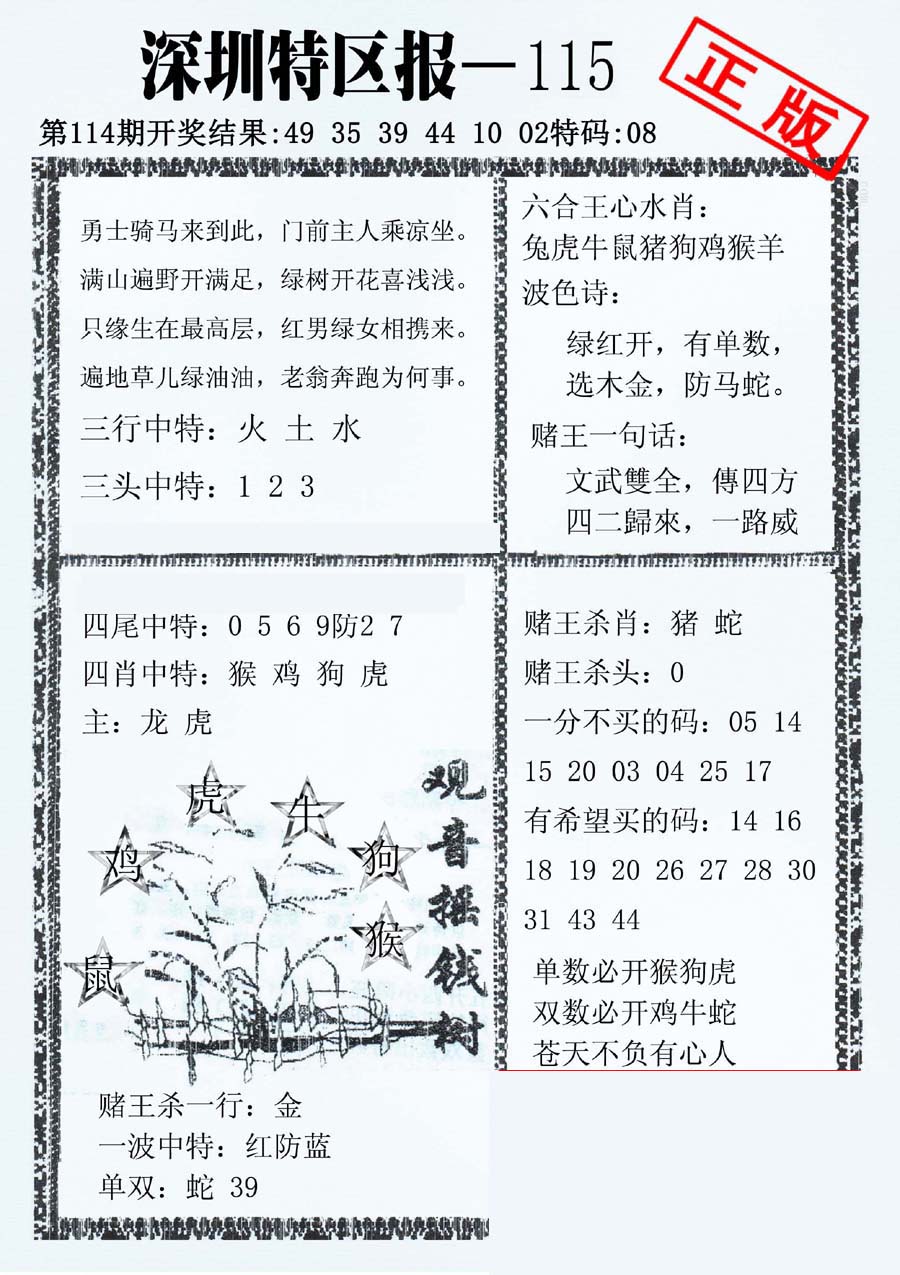 深圳特区报—115
正版
第114期开奖结果:49 35 39 44 10 02特码:08
勇士骑马来到此，门前主人乘凉坐。
满山遍野开满足，绿树开花喜浅浅。
只缘生在最高层，红男绿女相携来。
遍地草儿绿油油，老翁奔跑为何事。
三行中特：火 土 水
三头中特：1 2 3
六合王心水肖：
兔虎牛鼠猪狗鸡猴羊
波色诗：
绿红开，有单数，
选木金，防马蛇。
赌王一句话：
文武雙全，傳四方
四二歸來，一路威
四尾中特：0 5 6 9防2 7
四肖中特：猴 鸡 狗 虎
主：龙 虎
虎
牛
鸡
狗
猴
鼠
观音摇钱树
赌王杀一行：金
一波中特：红防蓝
单双：蛇 39
赌王杀肖：猪 蛇
赌王杀头：0
一分不买的码：05 14
15 20 03 04 25 17
有希望买的码：14 16
18 19 20 26 27 28 30
31 43 44
单数必开猴狗虎
双数必开鸡牛蛇
苍天不负有心人